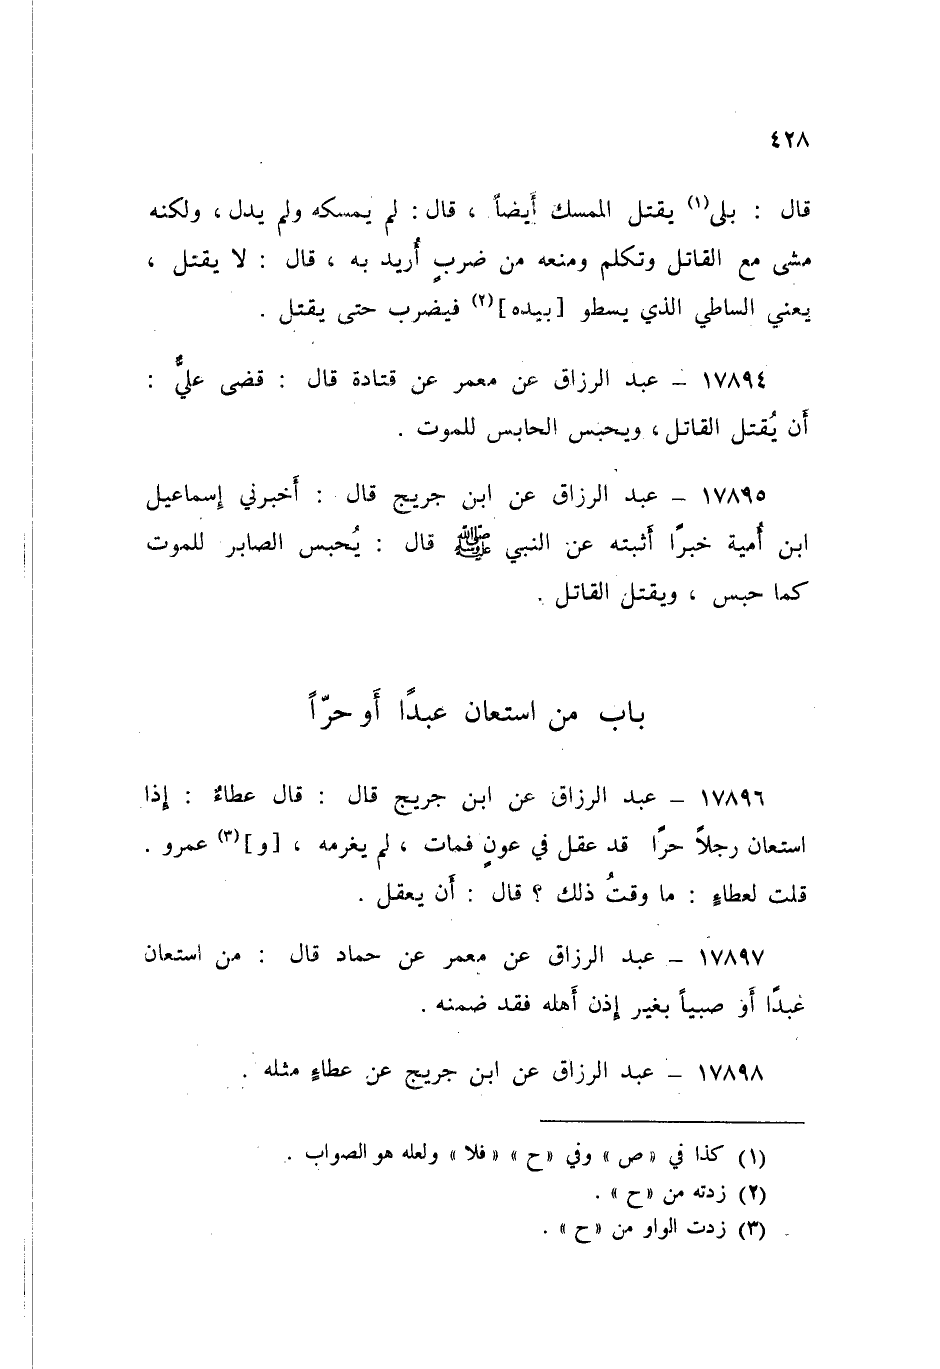 ٤٢٨
قال : بلى(١) يقتل الممسك أيضاً ، قال : لم يمسكه ولم يدل ، ولكنه
مشى مع القاتل وتكلم ومنعه من ضربٍ أُريد به ، قال : لا يقتل ،
يعني الساطي الذي يسطو [بيده](٢) فيضرب حتى يقتل .
١٧٨٩٤ – عبد الرزاق عن معمر عن قتادة قال : قضى عليٌّ :
أن يُقتل القاتل ، ويحبس الحابس للموت .
١٧٨٩٥ – عبد الرزاق عن ابن جريج قال : أخبرني إسماعيل
ابن أُمية خبرًا أثبته عن النبي ﷺ قال : يُحبس الصابر للموت
كما حبس ، ويقتل القاتل .
باب من استعان عبدًا أو حرّاً
١٧٨٩٦ – عبد الرزاق عن ابن جريج قال : قال عطاءٌ : إذا
استعان رجلاً حرًا قد عقل في عونٍ فمات ، لم يغرمه ، [و](٣) عمرو .
قلت لعطاءٍ : ما وقتُ ذلك ؟ قال : أن يعقل .
١٧٨٩٧ – عبد الرزاق عن معمر عن حماد قال : من استعان
عبدًا أو صبياً بغير إذن أهله فقد ضمنه .
١٧٨٩٨ – عبد الرزاق عن ابن جريج عن عطاءٍ مثله .
(١) كذا في «ص» وفي «ح» «فلا» ولعله هو الصواب .
(٢) زدته من «ح» .
(٣) زدت الواو من «ح» .